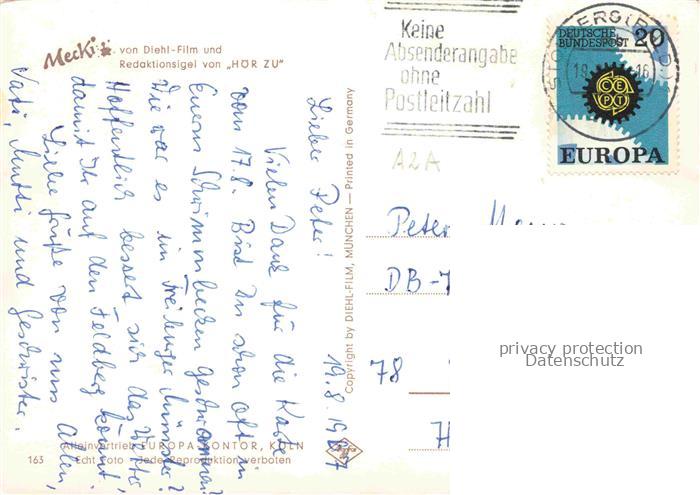 Mecki von Diehl-Film und
Redaktionsigel von „HÖR ZU"
Keine
Absenderangabe
ohne
Postleitzahl
DEUTSCHE
BUNDESPOST 20
CEPT
EUROPA
A2A
19.8.1967
Lieber Peter!
Vielen Dank für die Karte
vom 17.8. Bist Du schon oft in
Euerm Schwimmbecken geschwommen?
Wie war es im Freiburger Münster?
Hoffentlich bessert sich das Wetter
damit Ihr auf den Feldberg könnt.
Liebe Grüße von uns allen,
Vati, Mutti und Geschwister.
Copyright by DIEHL-FILM, MÜNCHEN — Printed in Germany
Peter
DB-7
78
H
privacy protection
Datenschutz
Alleinvertrieb EUROPA-KONTOR, KÖLN
163 Echt Foto Jede Reproduktion verboten